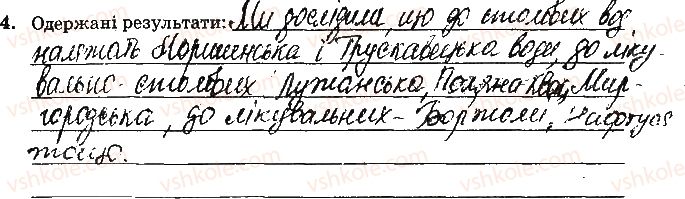 4. Одержані результати: Ми дослідила, що до столових вод
належать Моршинська і Трускавецька води, до ліку-
вально-столових Лужанська, Поляна Квас, Мир-
городська, до лікувальних - Боржомі, Нафтуся
тощо.